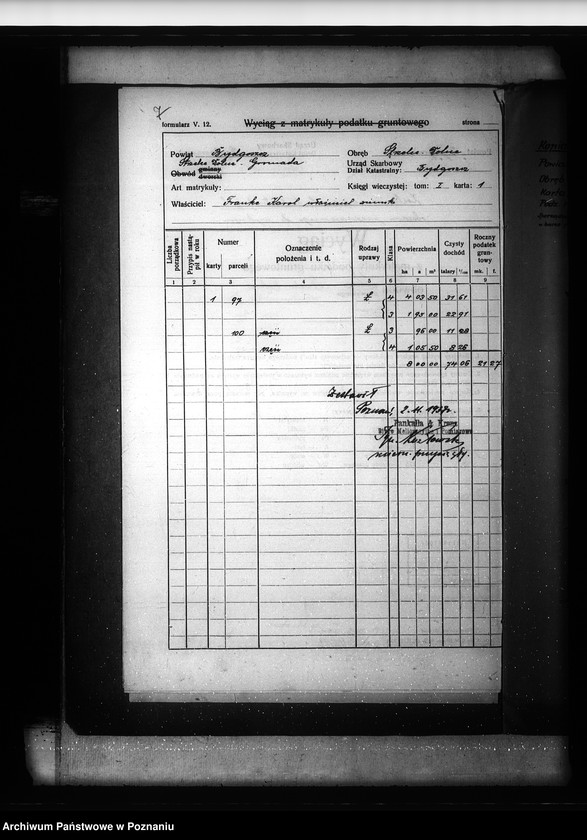 7
formularz V. 12.
Wyciąg z matrykuły podatku gruntowego
strona
Powiat Bydgoszcz
Obręb
Gromada
Urząd Skarbowy
Dział Katastralny: Bydgoszcz
Obwód gminny dworski
Art matrykuły:
Księgi wieczystej: tom: I karta: 1
Właściciel: Franke Karol właściciel ziemski
Liczba porządkowa
Przypis nastąpił w roku
Numer
karty
parceli
Oznaczenie
położenia i t. d.
Rodzaj uprawy
Klasa
Powierzchnia
ha a m²
Czysty dochód
talary 1/100
Roczny podatek gruntowy
mk. f.
1 2 3 4 5 6 7 8 9
1 97 Ł 4 4 03 50 31 61
3 1 95 00 22 91
100 część Ł 3 96 00 11 28
część 4 1 05 50 8 26
8 00 00 74 06 21 27
Zestawił
Poznań, 2. 11. 1937r.
Pankalla &